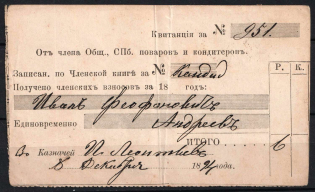 Квитанція за № 951.
Отъ члена Общ., СПб. поваровъ и кондитеровъ.
Записан. по Членской книгѣ за № Кандид
Р. К.
Получено членскихъ взносовъ за 18 годъ:
Иванъ Феофановичъ
Андреевъ
Единовременно
ИТОГО 6
За Казначей П. Леонтьевъ
8 Декабря 1894 года.